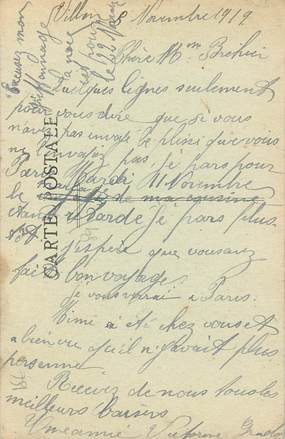 8 Novembre 1919
Chère Mme
Quelques lignes seulement
pour vous dire que si vous
n'avez pas envoyé le plissé que vous
ne l'envoyez pas. Je pars pour
Paris Mardi 11 Novembre
le de ma cousine
retarde je pars plus
tôt
J'espère que vous avez
fait bon voyage
Je vous verrai à Paris.
Mimi a été chez vous et
a bien vu qu'il n'y avait plus
personne.
Recevez de nous tous les
meilleurs baisers
Une amie Victorine
Excusez mon
griffonnage
la noce
est pour
le 29 Nov
CARTE POSTALE